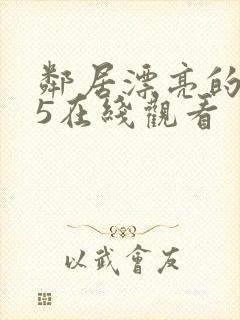 鄰居漂亮的
5在綫觀看
以武會友